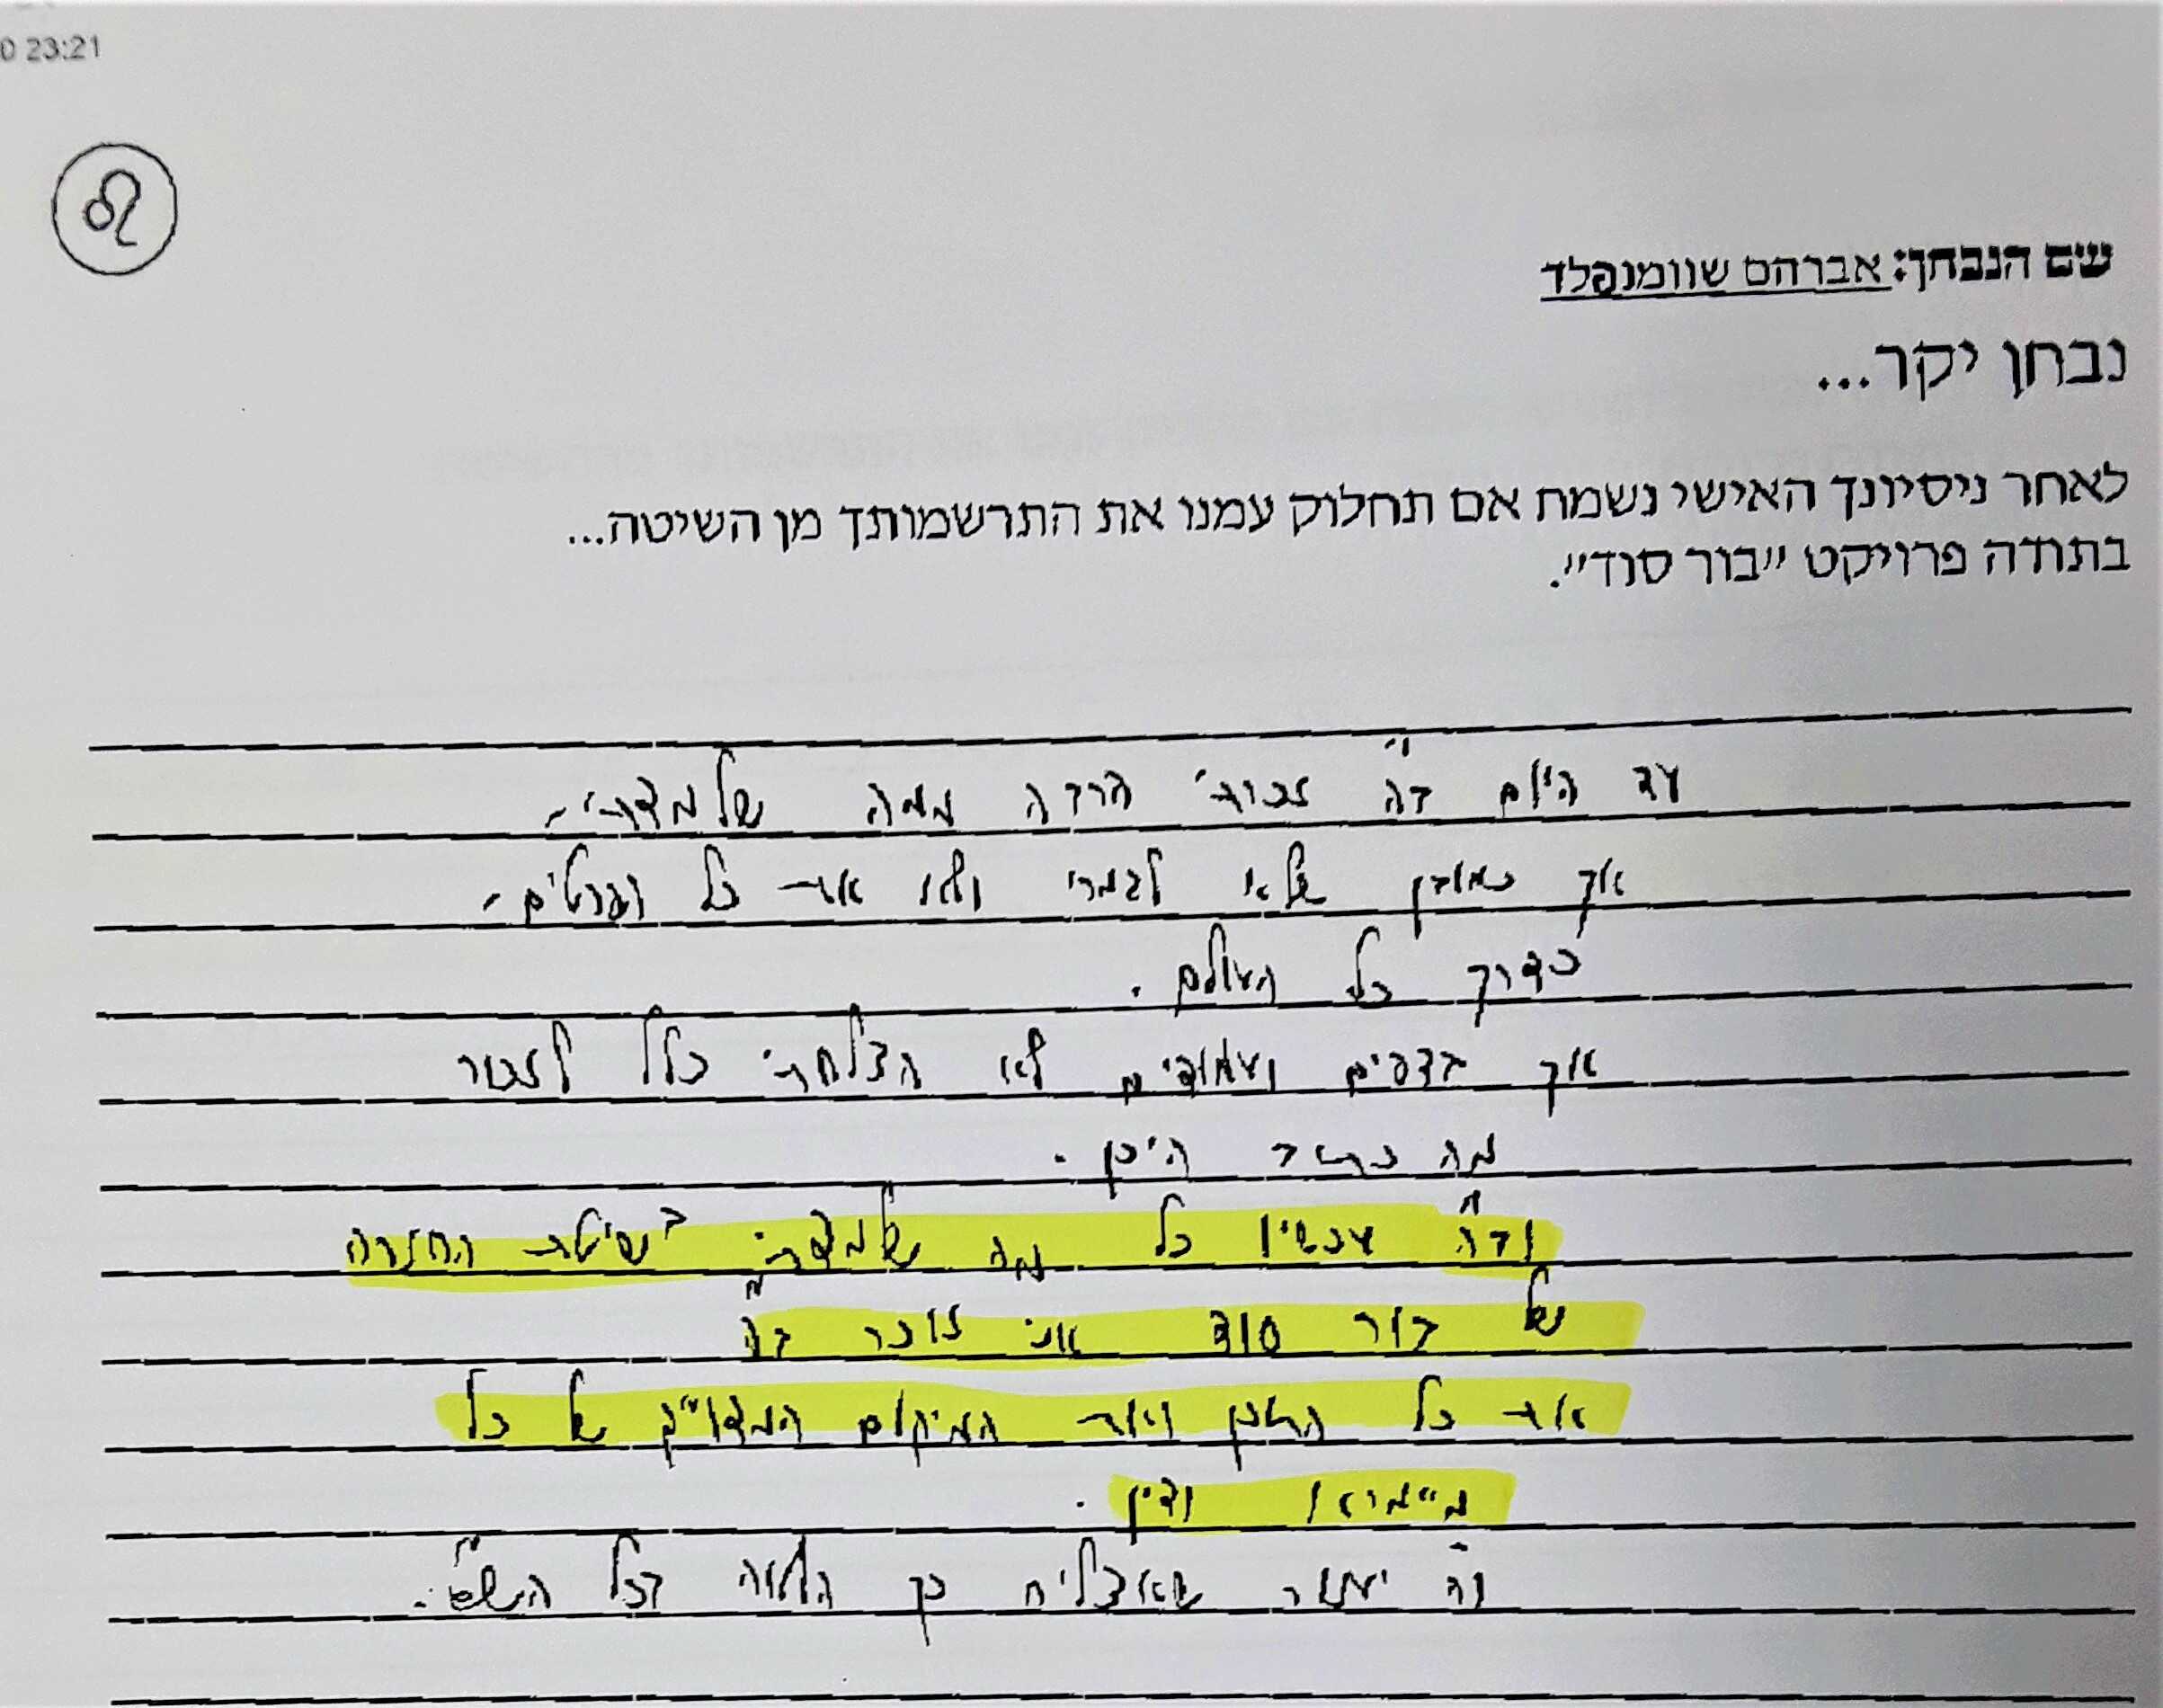 0 23:21
שם הנבחן: אברהם שוומנפלד
נבחן יקר...
לאחר ניסיונך האישי נשמח אם תחלוק עמנו את התרשמותך מן השיטה...
בתודה פרויקט "בור סוד".
עד היום ב"ה זכרתי הרבה ממה שלמדתי -
אך כמובן שלא לגמרי ולא את כל הפרטים -
כדרך כל העולם.
אך בדפים ועמודים לא הצלחתי כלל לזכור
מה כתוב היכן.
וב"ה עכשיו כל מה שלמדתי בשיטת החזרה
של בור סוד אני זוכר ב"ה
את כל התוכן ואת המיקום המדוייק של כל
מיימרא ודין.
וה' יעזור שאצליח כך הלאה בכל הש"ס.